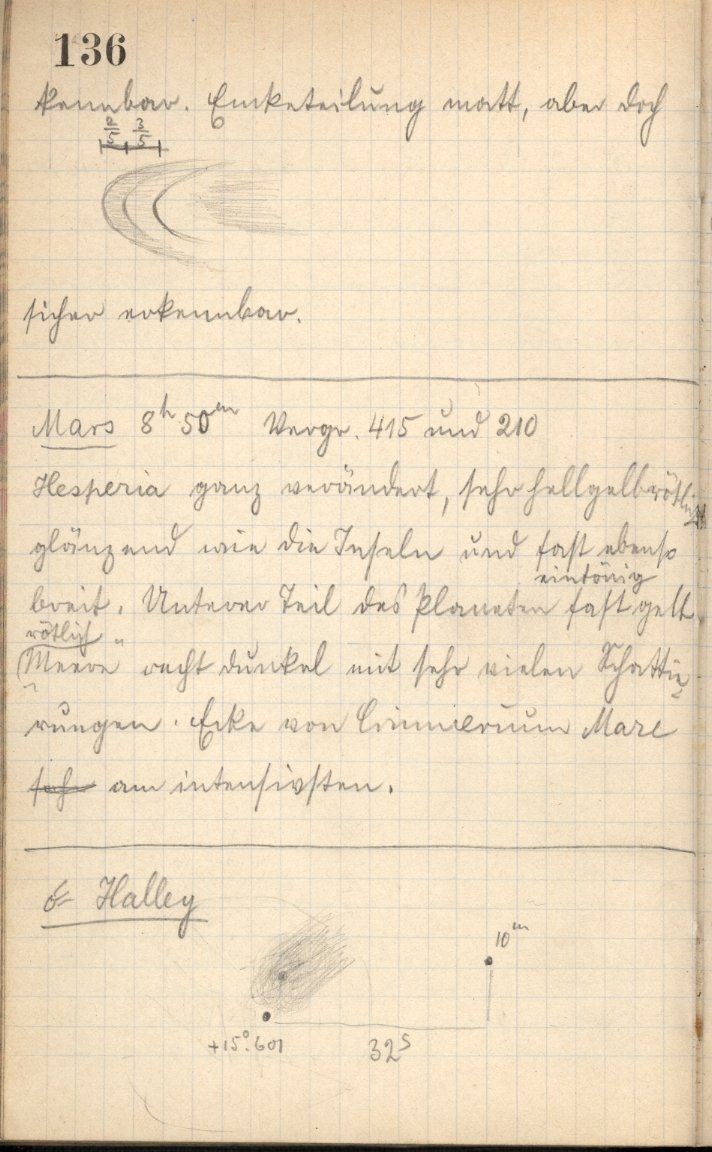 136
kennbar. Enketeilung matt, aber doch
2/5 3/5
sicher erkennbar.
Mars 8h 50m Vergr. 415 und 210
Hesperia ganz verändert, sehr hellgelbrötlich
glänzend wie die Inseln und fast ebenso
eintönig
breit. Unterer Teil des Planeten fast gelb
rötlich
"Meere" recht dunkel mit sehr vielen Schattie-
rungen. Ecke von Cimmerium Mare
am intensivsten.
☄ Halley
10m
+15°.601
32s